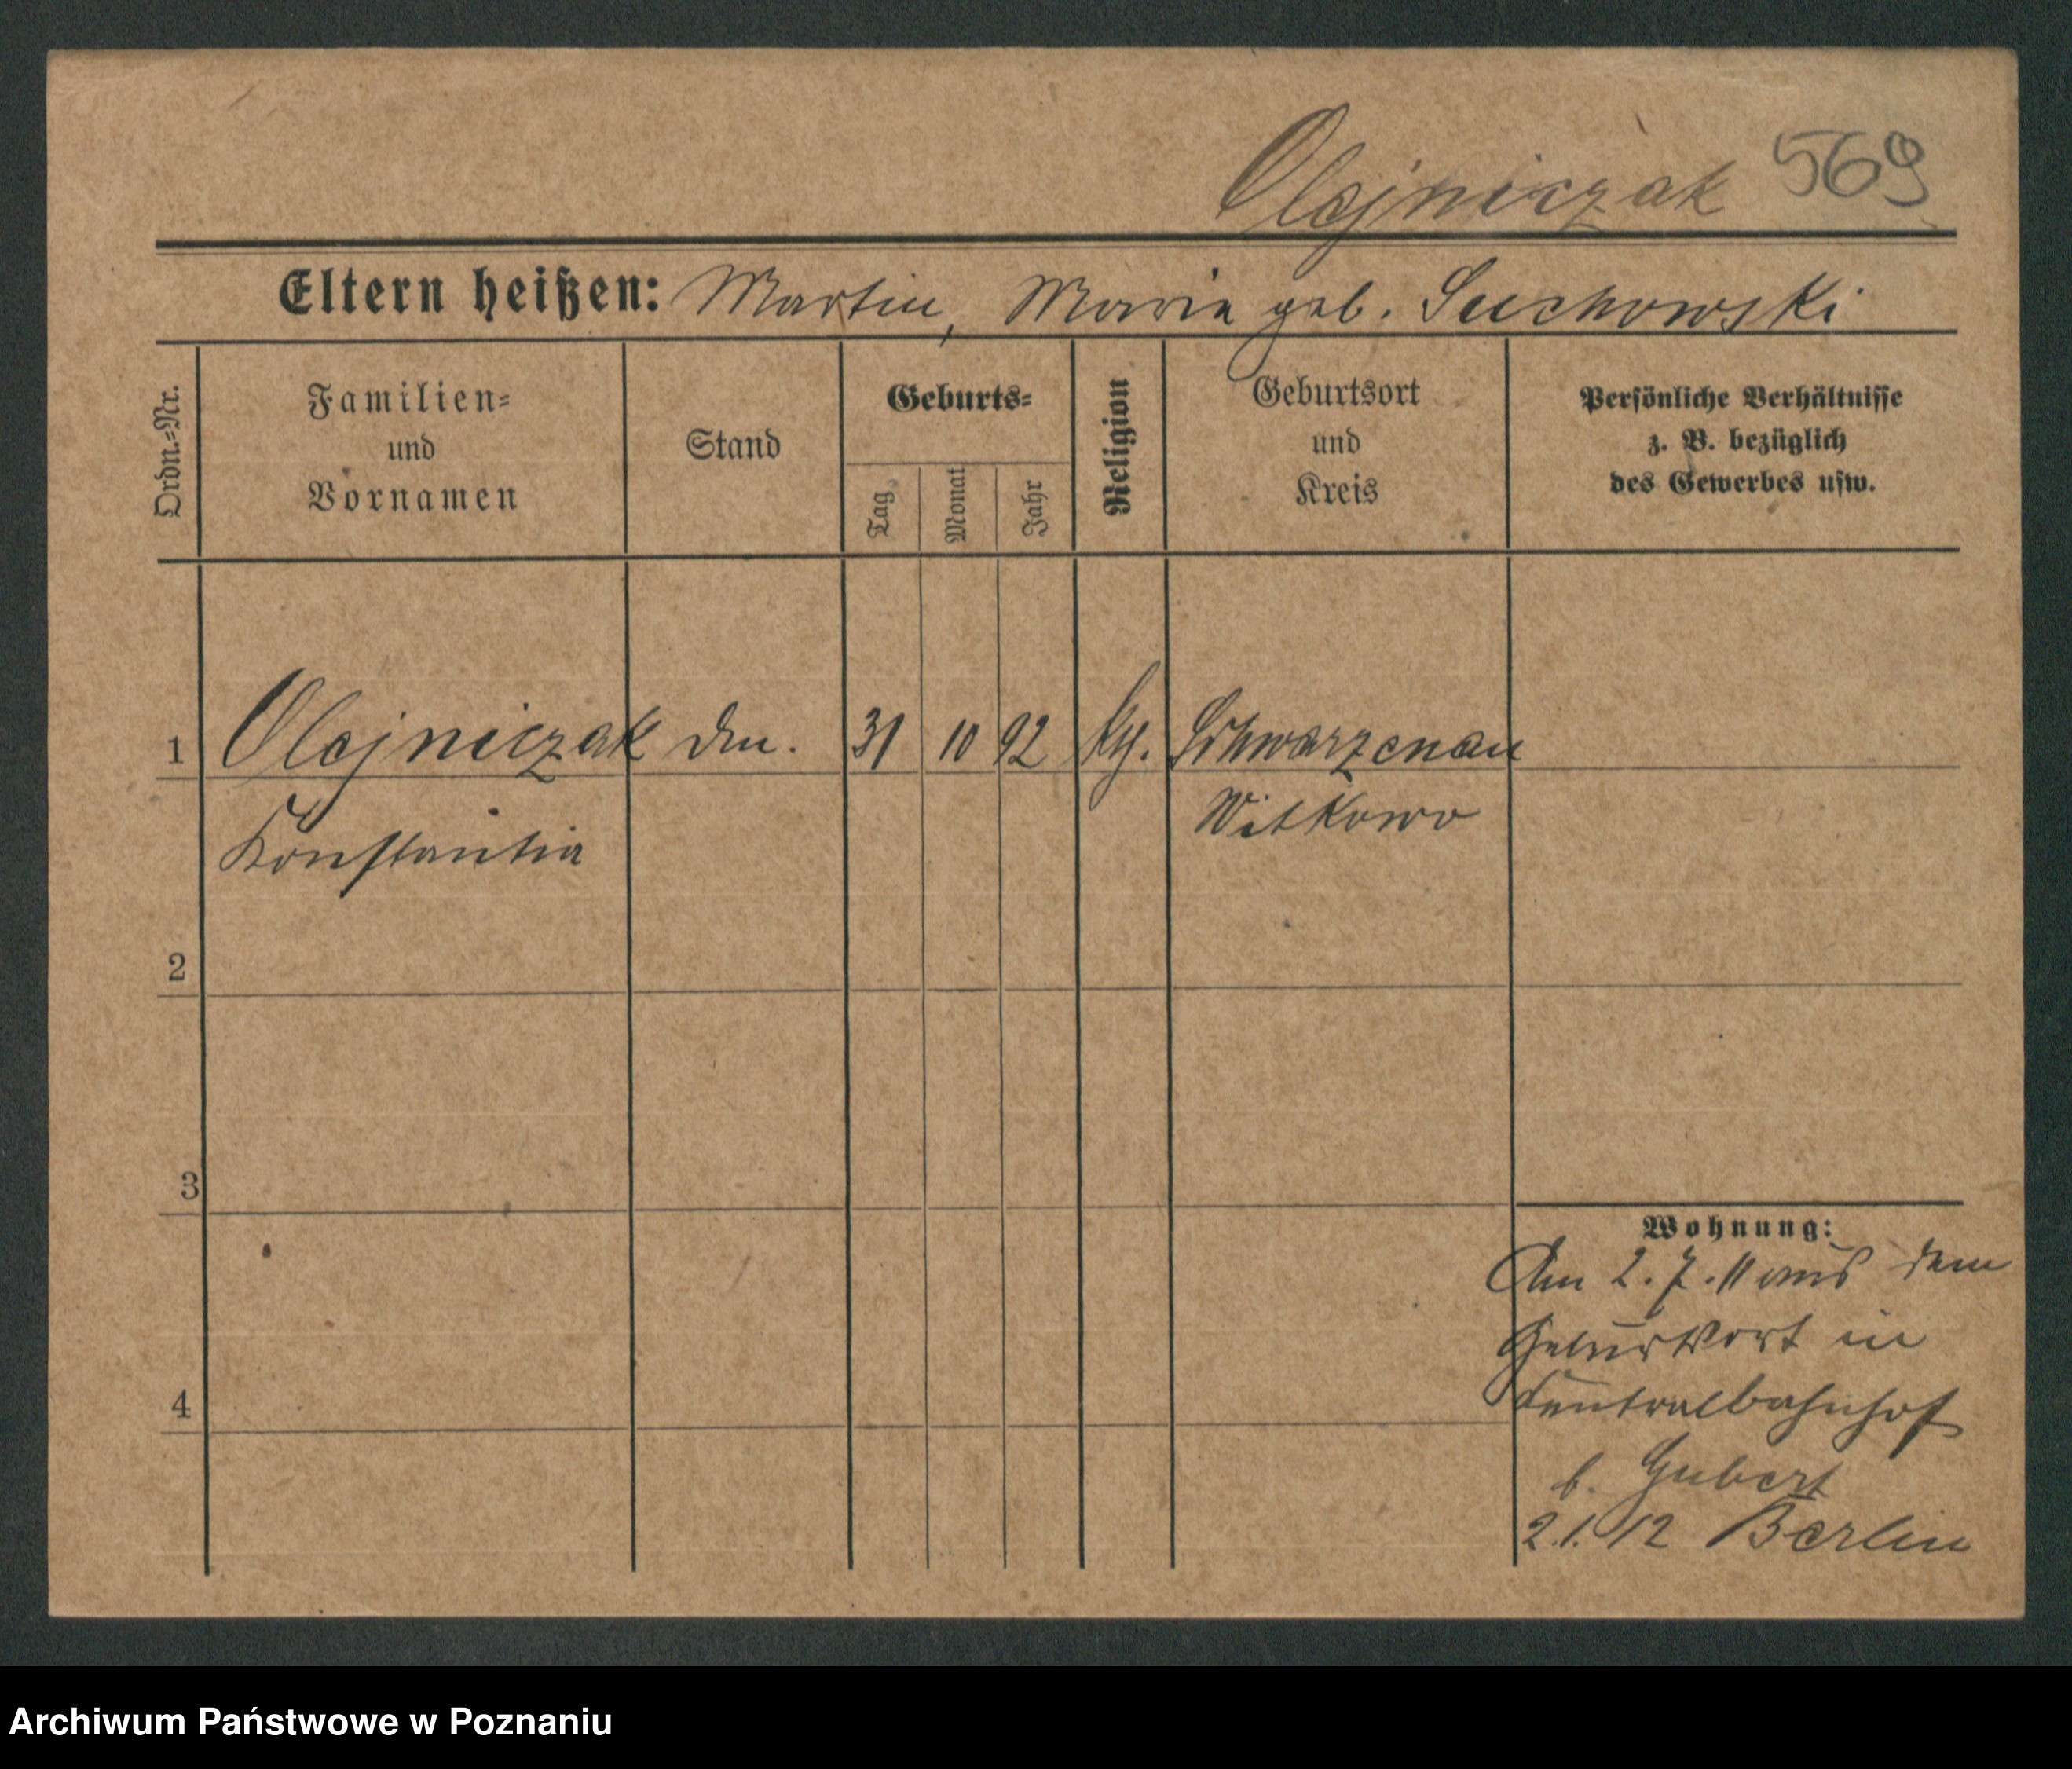 Olejniczak 569
Eltern heißen: Martin, Marie geb. Suchowski
Ordn.=Nr.
Familien=
und
Vornamen
Stand
Geburts=
Tag
Monat
Jahr
Religion
Geburtsort
und
Kreis
Persönliche Verhältnisse
z. B. bezüglich
des Gewerbes usw.
1 Olejniczak 31 10 92 Schwarzenau
Konstantia Witkowo
2
3
4
Wohnung:
Am 2.7.11 aus dem
Geburtsort in
Centralbahnhof
b. Gubert
2.1.12 Berlin
Archiwum Państwowe w Poznaniu